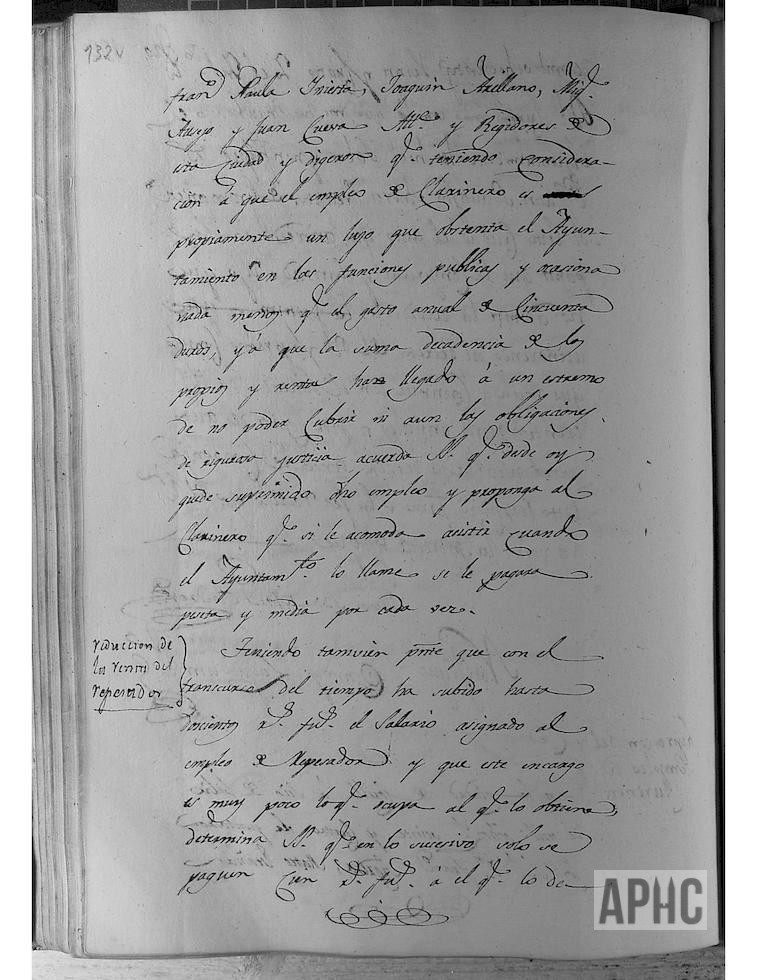 132v
Fran.co Paula Iniesta, Joaquin Arellano, Mig.l
Ausejo y Juan Cueva Alc.e y Regidores de
esta Ciudad y digeron q.e teniendo considera-
cion á que el empleo de Clarinero es
propiamente un lujo que obstenta el Ayun-
tamiento en las funciones publicas y ocasiona
nada menos q.e el gasto anual de Cincuenta
duros, y á que la suma decadencia de los
propios y rentas han llegado á un estremo
de no poder Cubrir ni aun las obligaciones
de rigurosa justicia acuerda SS. q.e desde oy
quede suprimido dho empleo y proponga al
Clarinero q.e si le acomoda asistir Cuando
el Ayuntam.to lo llame se le pagara
peseta y media por cada vez.
reduccion de
las rentas del
repesador
Teniendo tamvien pnte que con el
transcurso del tiempo ha subido hasta
doscientos r.s fu.s el Salario asignado al
empleo de Repesador y que este encargo
es muy poco lo q.e ocupa al q.e lo obtiene,
determina SS. q.e en lo sucesivo solo se
paguen Cien r.s fu.s á el q.e lo de-
APHC